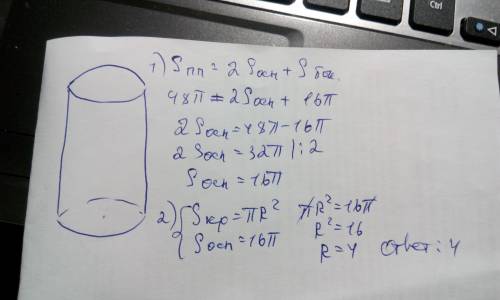 1) Sпп = 2Sосн + Sбок.
48π = 2Sосн + 16π
2Sосн = 48π - 16π
2Sосн = 32π | : 2
Sосн = 16π
2) { Sкр = πR² πR² = 16π
Sосн = 16π R² = 16
R = 4 Ответ: 4
Ctrl